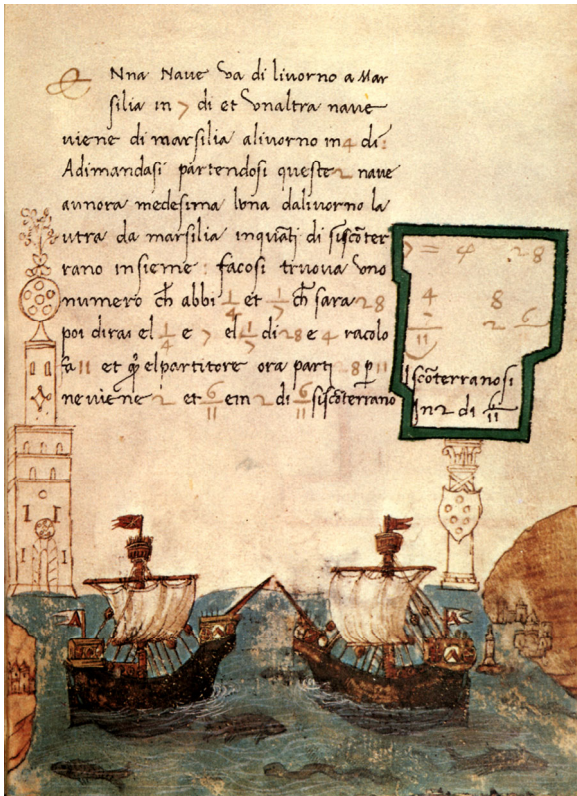 Nna Naue va di liuorno a Mar
silia in 7 di et vnaltra naue
uiene di marsilia aliuorno in 4 di:
Adimandasi partendosi queste 2 naue
aunora medesima luna daliuorno la
utra da marsilia inquãti di siscõter
rano insieme: facosi truoua vno
numero ch̃ abbi 1/4 et 1/7 ch̃ sara 28
poi dirai el 1/4 e 7 el 1/7 di 28 e 4 racolo
fa 11 et elpartitore ora parti 28 p 11
neuiene 2 et 6/11 e in 2 di 6/11 siscõterrano
7 = 4 28
4 8
7
11 2 6
Iscõterranosi
In 2 di 6/11